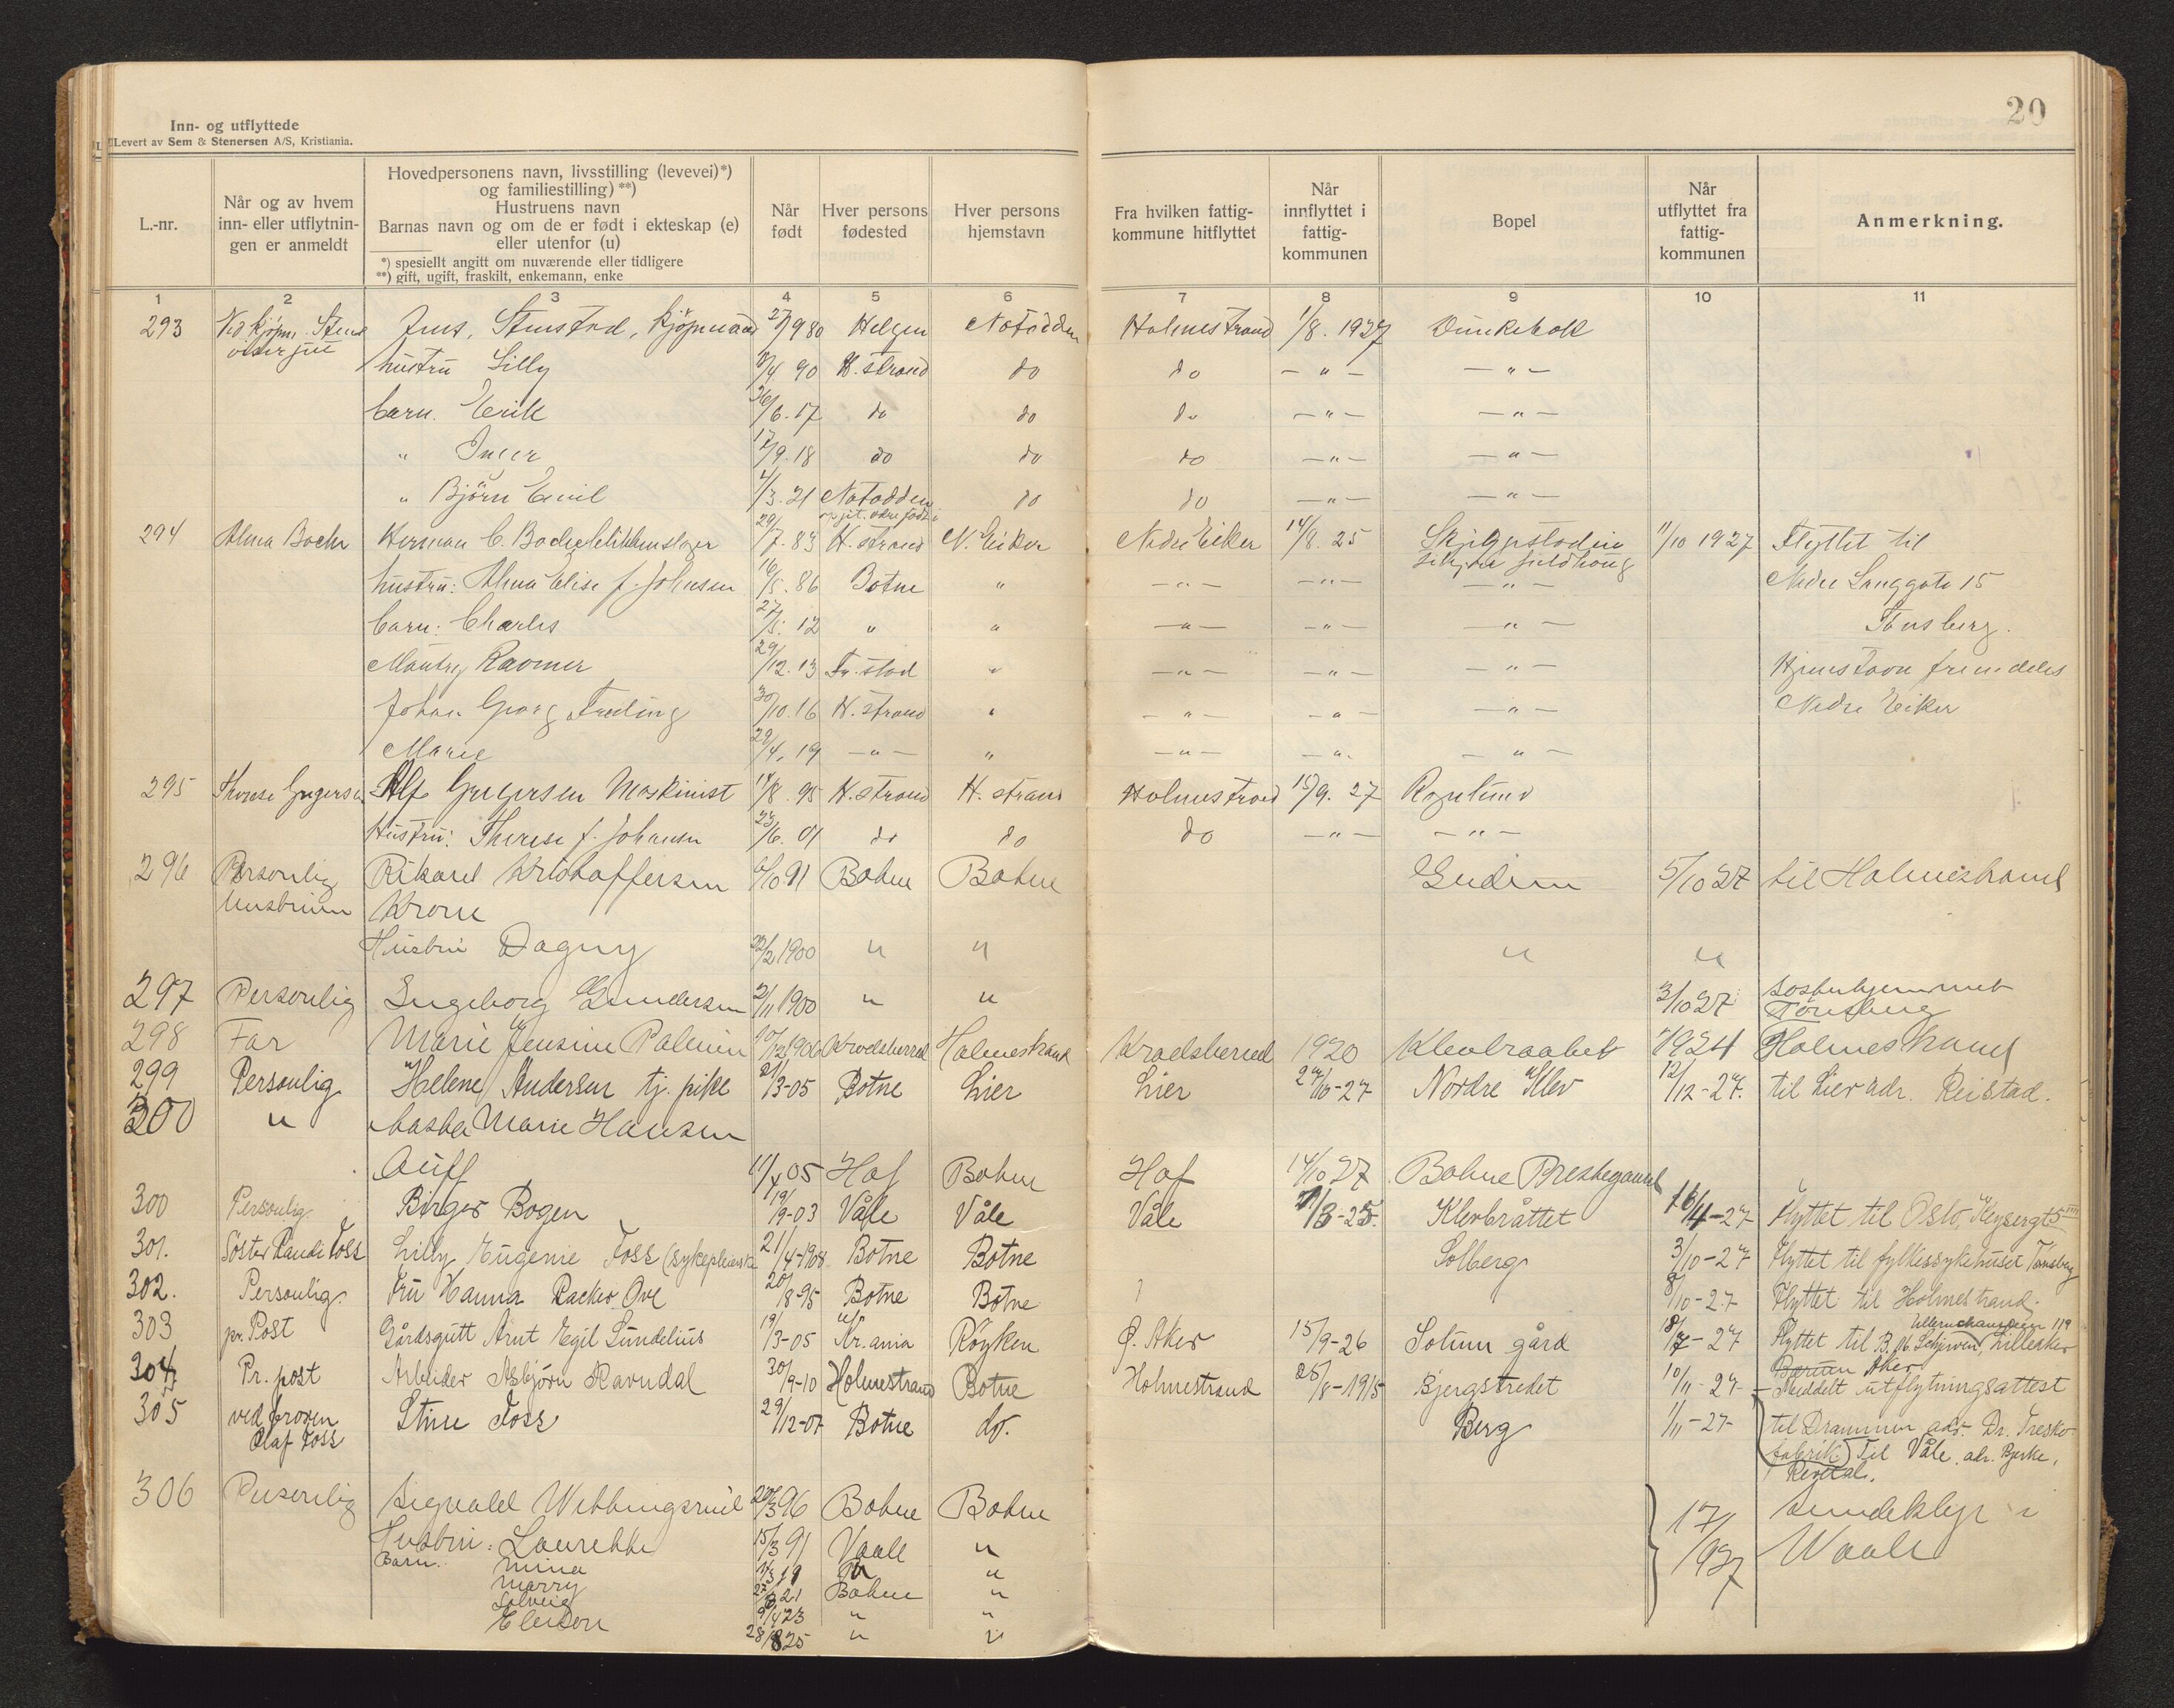 20
Inn- og utflyttede
Levert av Sem & Stenersen A/S, Kristiania.
L.-nr.
Når og av hvem inn- eller utflytningen er anmeldt
Hovedpersonens navn, livsstilling (levevei)*)
og familiestilling) **)
Hustruens navn
Barnas navn og om de er født i ekteskap (e)
eller utenfor (u)
*) spesiellt angitt om nuværende eller tidligere
**) gift, ugift, fraskilt, enkemann, enke
Når født
Hver persons fødested
Hver persons hjemstavn
Fra hvilken fattigkommune hitflyttet
Når innflyttet i fattigkommunen
Bopel
Når utflyttet fra fattigkommunen
Anmerkning.
1 2 3 4 5 6 7 8 9 10 11
293 Stenstad, kjøpmand 27/9 80 Helgen Notodden Holmestrand 1/8. 1927
hustru Lilly /4 90 H.strand do do — " — — " —
barn. Erik /6. 17 do do do — " — — " —
" Inger 17/9. 18 do do do — " — — " —
" Bjørn Emil /3. 21 Notodden do do — " — — " —
294 Herman C. 29/7. 83 H. strand N. Eiker Nedre Eiker 14/8. 25 11/10 1927 Flyttet til
hustru: Alma Elise f. Johnsen 16/5. 86 Botne " — " — — " — — " — Nedre Langgate 15
barn: Charles 27/5. 12 " " — " — — " — — " — Tønsberg.
29/12. 13 Fr. stad " — " — — " — — " — Hjemstavn fremdeles
Johan Georg 30/10. 16 H. strand " — " — — " — — " — Nedre Eiker
Marie 29/4. 19 — " — " — " — — " — — " —
295 Alf Gregersen Maskinist 14/8. 95 H. strand H. strand Holmestrand 15/9. 27
Hustru: Therese f. Johansen 23/6. 01 do do do — " — — " —
296 Personlig Rikard Kristoffersen 6/10 91 Botne Botne 5/10 27 til Holmestrand
Hustruen
Hustru Dagny /2 1900 " " " "
297 Personlig Ingeborg Gundersen 2/11 1900 " " 3/10 27 Tønsberg
298 Far Marie Jensine Krodsherred Holmestrand Krodsherred 1920 1924 Holmestrand
299 Personlig Helene Andersen tj. pike 21/3-05 Botne Lier Lier 24/10-27 Nordre Klev 12/12-27. til Lier adr. Reistad.
300 " Aasta Marie Hansen
11/x 05 Hof Botne Hof 14/10 27 Botne Prestegaard
300 Personlig Birger Bogen 19/9-03 Våle Våle Våle /3-25. Klevbråttet 16/4-27 Flyttet til Oslo,
301. Söster Randi Foss Lilly Eugenie Foss (sykepleierske 21/4-1908 Botne Botne Solberg 3/10-27 Flyttet til fylkessykehuset Tønsberg
302. Personlig. Fru Hanna Backer Ove 20/8-95 Botne Botne ? 8/10-27 Flyttet til Holmestrand.
303 pr. Post Gårdsgutt Arnt Egil Sundelius 19/3-05 Kr.ania Røyken Ø. Aker 15/9-26 Solum gård 18/7-27 Ullernchausseen 119
Flyttet til Lilleaker
Bærum Aker
304 Pr. post Arbeider Asbjørn Ravndal 30/9-10 Holmestrand Botne Holmestrand 25/8-1915 Bjergstredet 10/11-27 Meddelt utflytningsattest
305 ved broren Stine Foss 29/12-07 Botne do. Berg 1/11-27 til Drammen adr. Dr. Tresko-
Olaf Foss fabrik) Til Våle. adr. Bjerke,
Revetal.
306 Personlig Sigvald 20/3 96 Botne Botne
Hustru: Laurette 15/3 91 Vaale " 17/1
Barn: Mina " " 1927 Waale
Marry 21 Botne "
Solveig 9/4 23 " "
28/8 25 " "